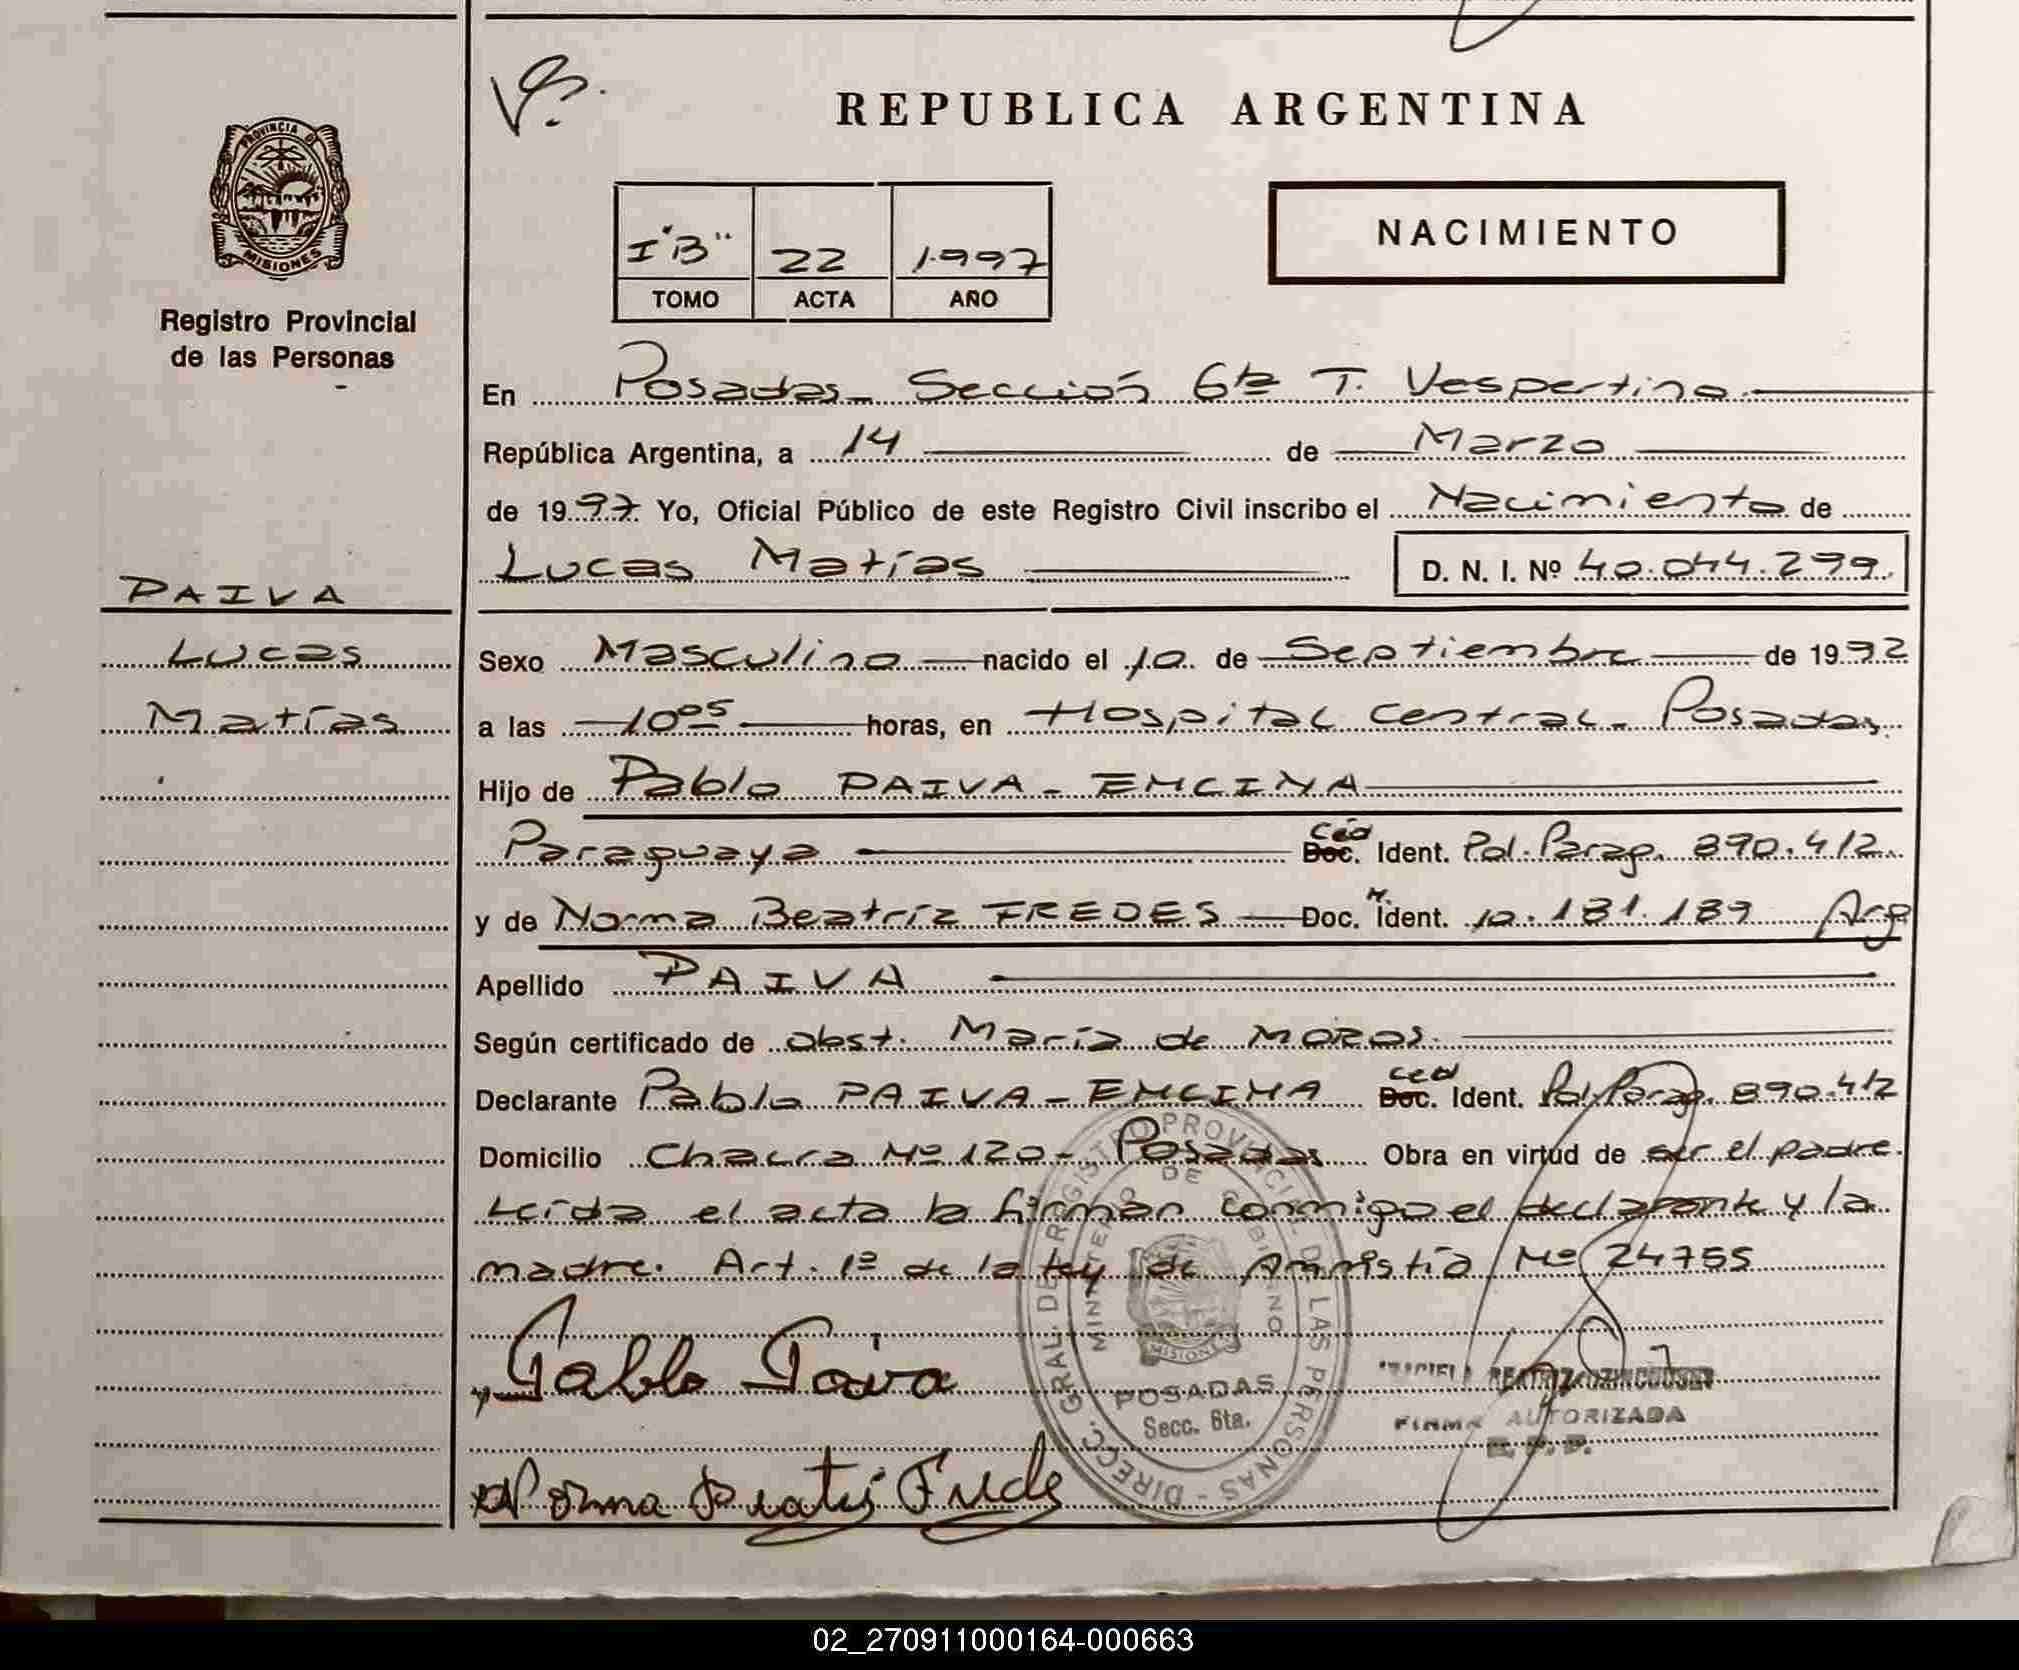 REPUBLICA ARGENTINA
PROVINCIA D
MISIONES
Registro Provincial
de las Personas
I "B" 22 1997
TOMO ACTA AÑO
NACIMIENTO
En Posadas - Sección 6ta T. Vespertino
República Argentina, a 14 de Marzo
de 1997 Yo, Oficial Público de este Registro Civil inscribo el Nacimiento de
Lucas Matías D. N. I. Nº 40.044.299
PAIVA
Lucas
Matías
Sexo Masculino nacido el 10 de Septiembre de 1992
a las 10 05 horas, en Hospital Central - Posadas
Hijo de Pablo PAIVA - ENCINA
Paraguaya Céd Doc. Ident. Pol. Parag. 890.412.
y de Norma Beatríz FREDES Doc. N. Ident. 10.181.189 Arg
Apellido PAIVA
Según certificado de obst. María de MOROS.
Declarante Pablo PAIVA - ENCINA Ced Doc. Ident. Pol. Parag. 890.412
Domicilio Chacra Nº 120 - Posadas Obra en virtud de ser el padre.
Leída el acta la firman conmigo el declarante y la
madre. Art. 1º de la ley de Amnistía Nº 24755
Pablo Paiva
DIRECC. GRAL. DE REGISTRO PROVINCIAL DE LAS PERSONAS -
MINISTERIO DE GOBIERNO
MISIONES
POSADAS
Secc. 6ta.
FIRMA AUTORIZADA
R. P. P.
Norma Beatriz Fredes
02_270911000164-000663